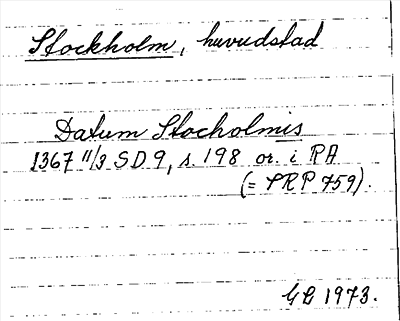 Stockholm, huvudstad
Datum Stocholmis
1367 11/3 SD 9, s. 198 or. i RA
(= PRP 759).
GG 1973.